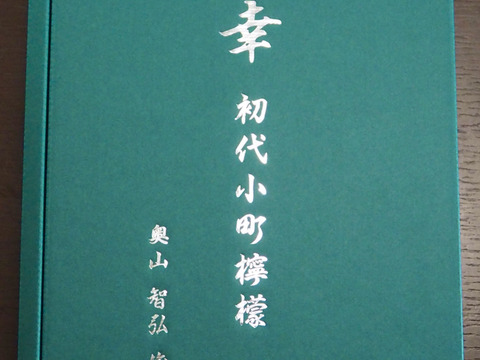 幸
初代小町檸檬
奥山 智弘